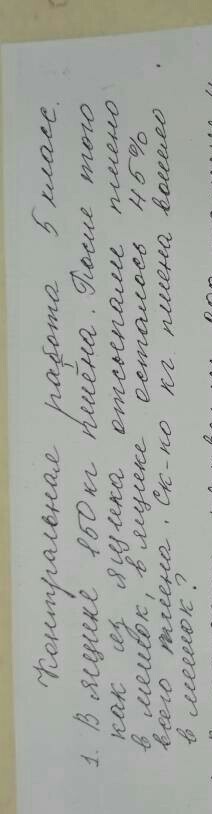 Контрольная работа 5 класс.
1. В ящике 150 кг пшена. После того
как из ящика отсыпали пшено
в мешок, в ящике осталось 45%
всего пшена. Ск-ко кг пшена вошло
в мешок?